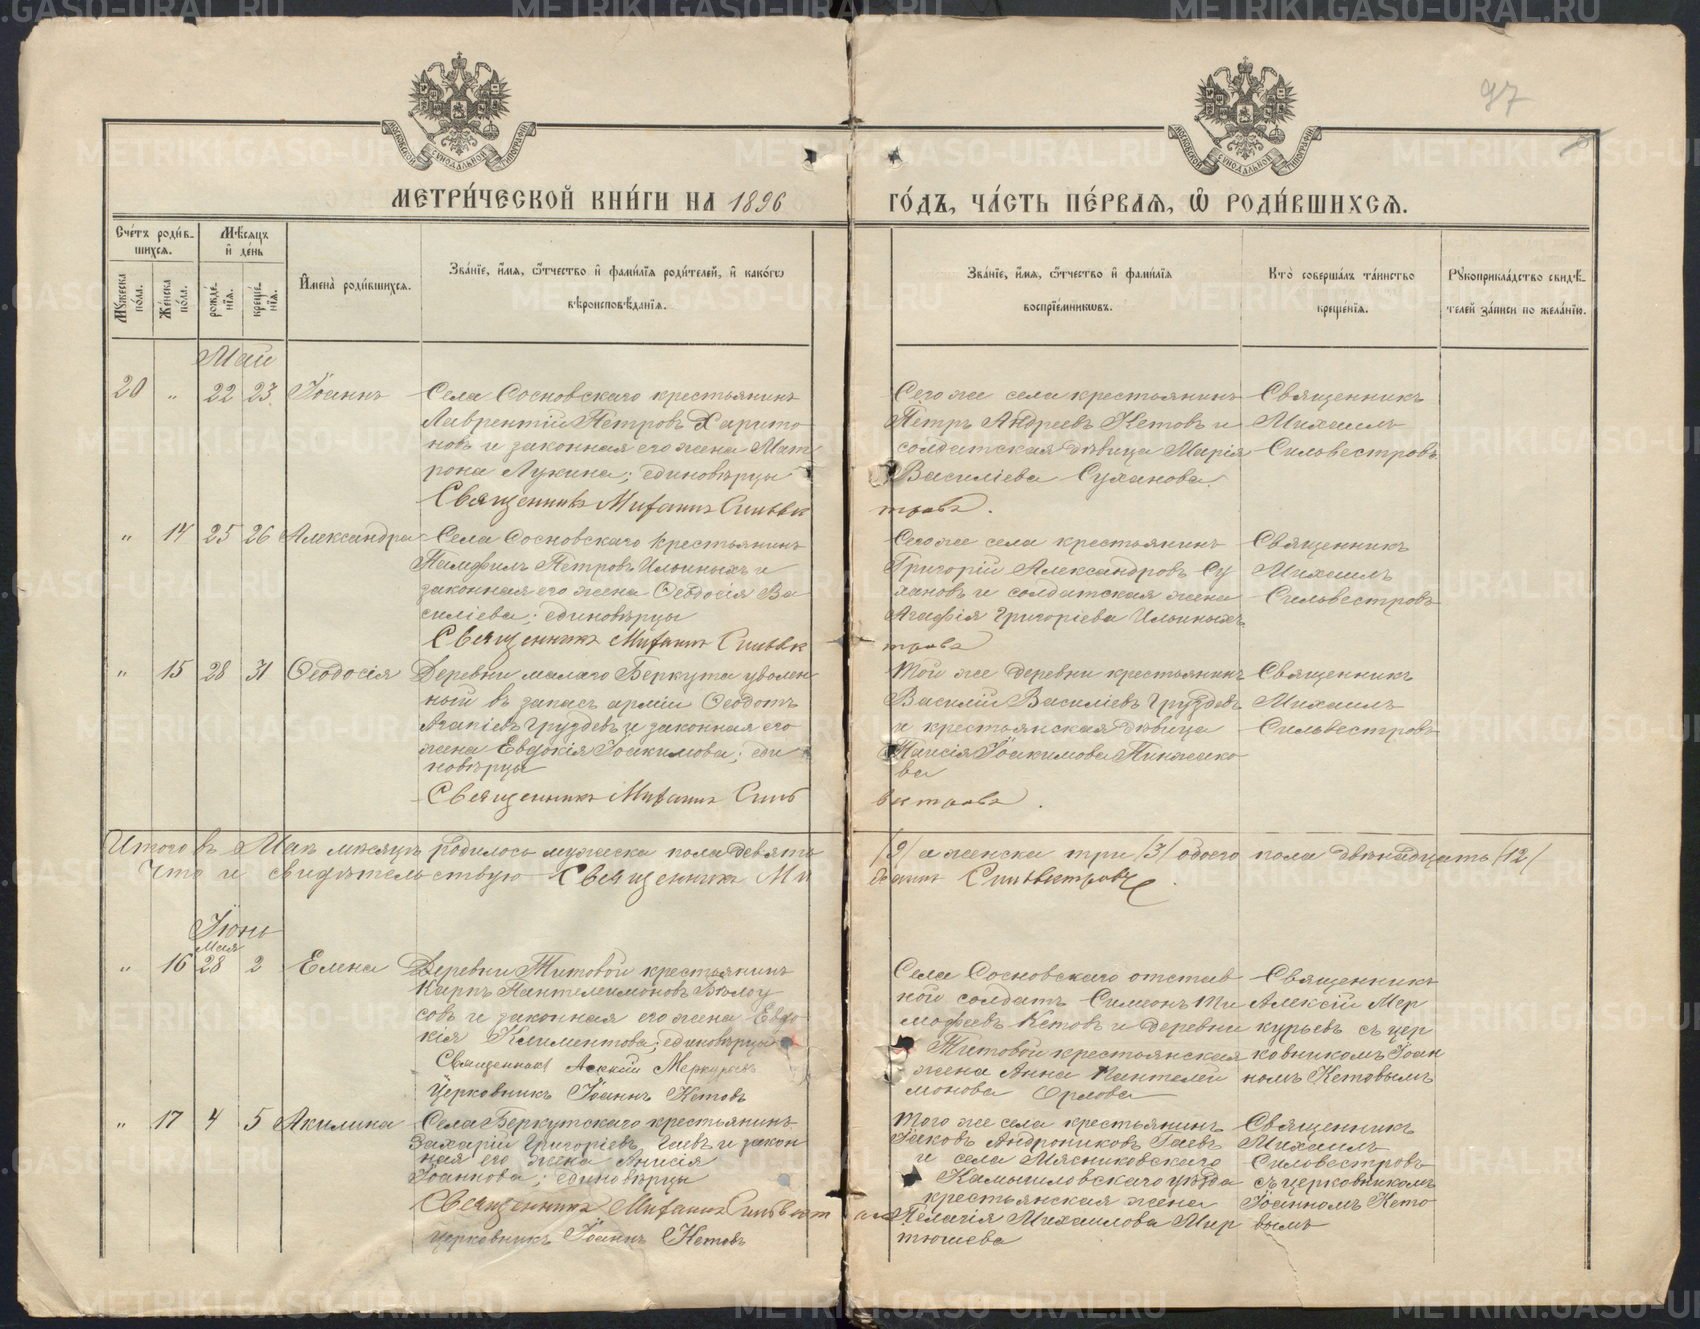 METRIKI.GASO-URAL.RU
97
МОСКОВСКОЙ СѴНОДАЛЬНОЙ ТИПОГРАФІИ
МОСКОВСКОЙ СѴНОДАЛЬНОЙ ТИПОГРАФІИ
МЕТРИ́ЧЕСКОЙ КНИ́ГИ НА 1896
ГО́ДЪ, ЧА́СТЬ ПЕ́РВАѦ, Ѡ҆ РОДИ́ВШИХСѦ.
Сче́тъ роди́в-
шихсѧ.
Мꙋ́жеска по́ла.
Же́нска по́ла.
Мѣ́сѧцъ
и҆ де́нь
рожде́-
нїѧ.
креще́-
нїѧ.
И҆мена̀ роди́вшихсѧ.
Зва́нїе, и҆́мѧ, ѻ҆́тчество и҆ фами́лїѧ роди́телей, и҆ како́гѡ
вѣроисповѣ́данїѧ.
Зва́нїе, и҆́мѧ, ѻ҆́тчество и҆ фами́лїѧ
воспрїе́мникѡвъ.
Кто̀ соверша́лъ та́инство
креще́нїѧ.
Рꙋкоприкла́дство свидѣ́-
телей за́писи по жела́нїю.
Май
20 " 22 23 Іоаннъ
Села Сосновскаго крестьянинъ
Лаврентій Петровъ Харито
новъ и законная его жена Мат
рона Лукина; единовѣрцы
Священникъ Михаилъ Сильвес
Сегоже села крестьянинъ
Петръ Андреевъ Кетовъ и
солдатская дѣвица Марія
Василіева Суханова.
тровъ.
Священникъ
Михаилъ
Сильвестровъ
" 14 25 26 Александра
Села Сосновскаго крестьянинъ
Памфилъ Петровъ Ильиныхъ и
законная его жена Ѳеодосія Ва
силіева; единовѣрцы
Священникъ Михаилъ Сильвес
Сегоже села крестьянинъ
Григорій Александровъ Су
хановъ и солдатская жена
Агафія Григоріева Ильиныхъ
тровъ
Священникъ
Михаилъ
Сильвестровъ
" 15 28 31 Ѳеодосія
Деревни малаго Беркута уволен
ный въ запасъ арміи Ѳеодотъ
Агапіевъ Груздевъ и законная его
жена Евдокія Іоакимова; еди
новѣрцы
Священникъ Михаилъ Силь
Той же деревни крестьянинъ
Василій Василіевъ Груздевъ
и крестьянская дѣвица
Таисія Іоакимова Пинжако
ва
вестровъ.
Священникъ
Михаилъ
Сильвестровъ
Итого въ Маѣ мѣсяцѣ родилось мужеска пола девять
/9/ а женска три /3/ обоего пола двѣнадцать /12/
Что и свидѣтельствую Священникъ Ми
хаилъ Сильвестровъ.
Іюнь
Мая
" 16 28 2 Елена
Деревни Титовой крестьянинъ
Карпъ Пантелеимоновъ Бѣлоу
совъ и законная его жена Евдо
кія Климентова; единовѣрцы
Священникъ Алексій Меркурьевъ
Церковникъ Іоаннъ Кетовъ
Села Сосновскаго отстав
ной солдатъ Симеонъ Ти
мофеевъ Кетовъ и деревни
Титовой крестьянская
жена Анна Пантелеи
монова Орлова
Священникъ
Алексій Мер
курьевъ съ цер
ковникомъ Іоан
номъ Кетовымъ
" 17 4 5 Акилина
Села Беркутскаго крестьянинъ
Захарій Григоріевъ Гаевъ и закон
ная его жена Анисія
Іоаннова; единовѣрцы
Священникъ Михаилъ Сильвест
Церковникъ Іоаннъ Кетовъ
Того же села крестьянинъ
Іаковъ Андрониковъ Гаевъ
и села Мясниковскаго
Камышловскаго уѣзда
крестьянская жена
Пелагія Михаилова Мир
тюшева
Священникъ
Михаилъ
Сильвестровъ
съ церковникомъ
Іоанномъ Кето
вымъ